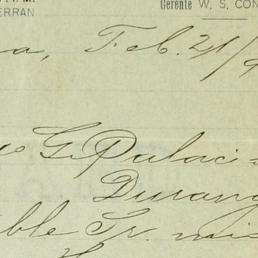 ERRAN
Gerente W, S, CON
a, Feb. 21/9
G. Palaci
Durang
ble Sr. mi